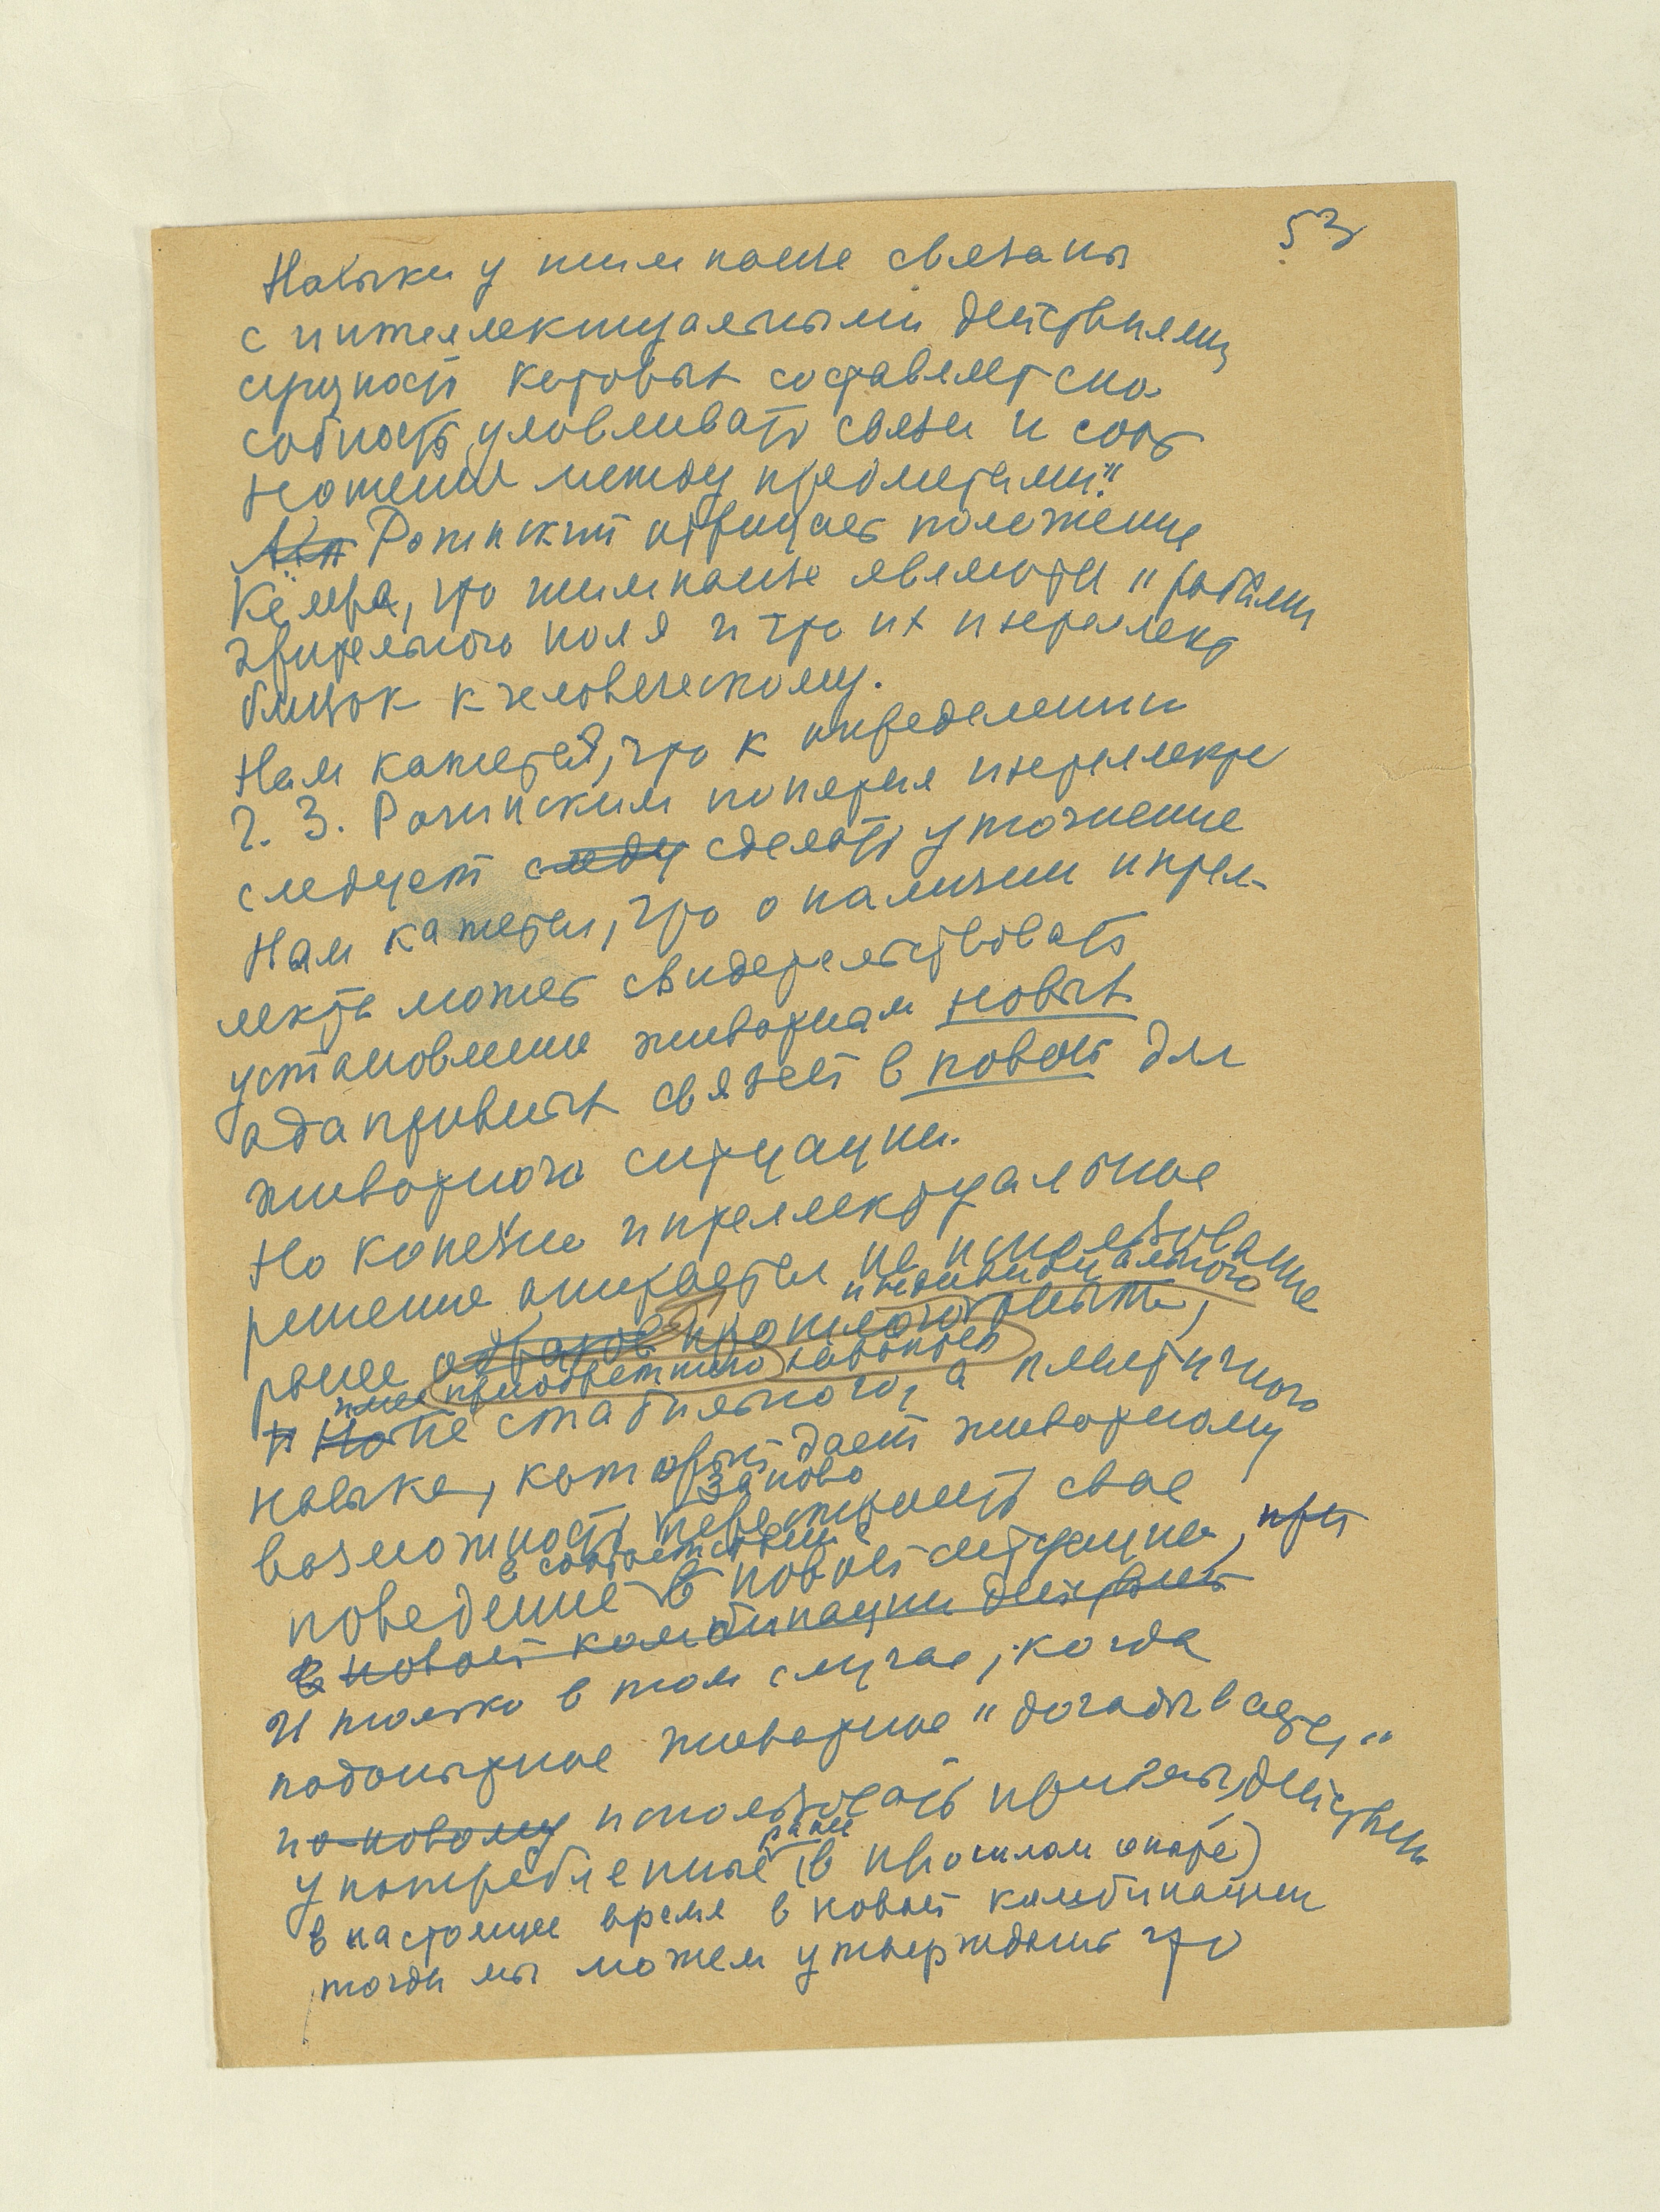 53
Навыки у шимпанзе связаны
с интеллектуальными действиями
сущность которых составляет спо-
собность улавливать связи и соот
ношения между предметами."
Рогинский отрицает положение
Кёлера, что шимпанзе являются "рабами
зрительного поля и что их интеллект
близок к человеческому.
Нам кажется, что к определению
Г. З. Рогинским понятия интеллекта
следует следу сделать уточнение
Нам кажется, что о наличии интел-
лекта может свидетельствовать
установление животным новых
адаптивных связей в новой для
животного ситуации.
Но конечно интеллектуальное
решение опирается на использование
индивидуального
ранее прошлого опыта,
приобретенного навыков
не стабильного, а пластичного
навыка, который дает животному
заново
возможность перестроить свое
в соответствии с
поведение в новой ситуации, при
в новой комбинации действий
И только в том случае, когда
подопытное животное "догадывается"
по-новому использовать приемы, действия
ранее
употребленные (в прошлом опыте)
в настоящее время в новой комбинации
тогда мы можем утверждать что